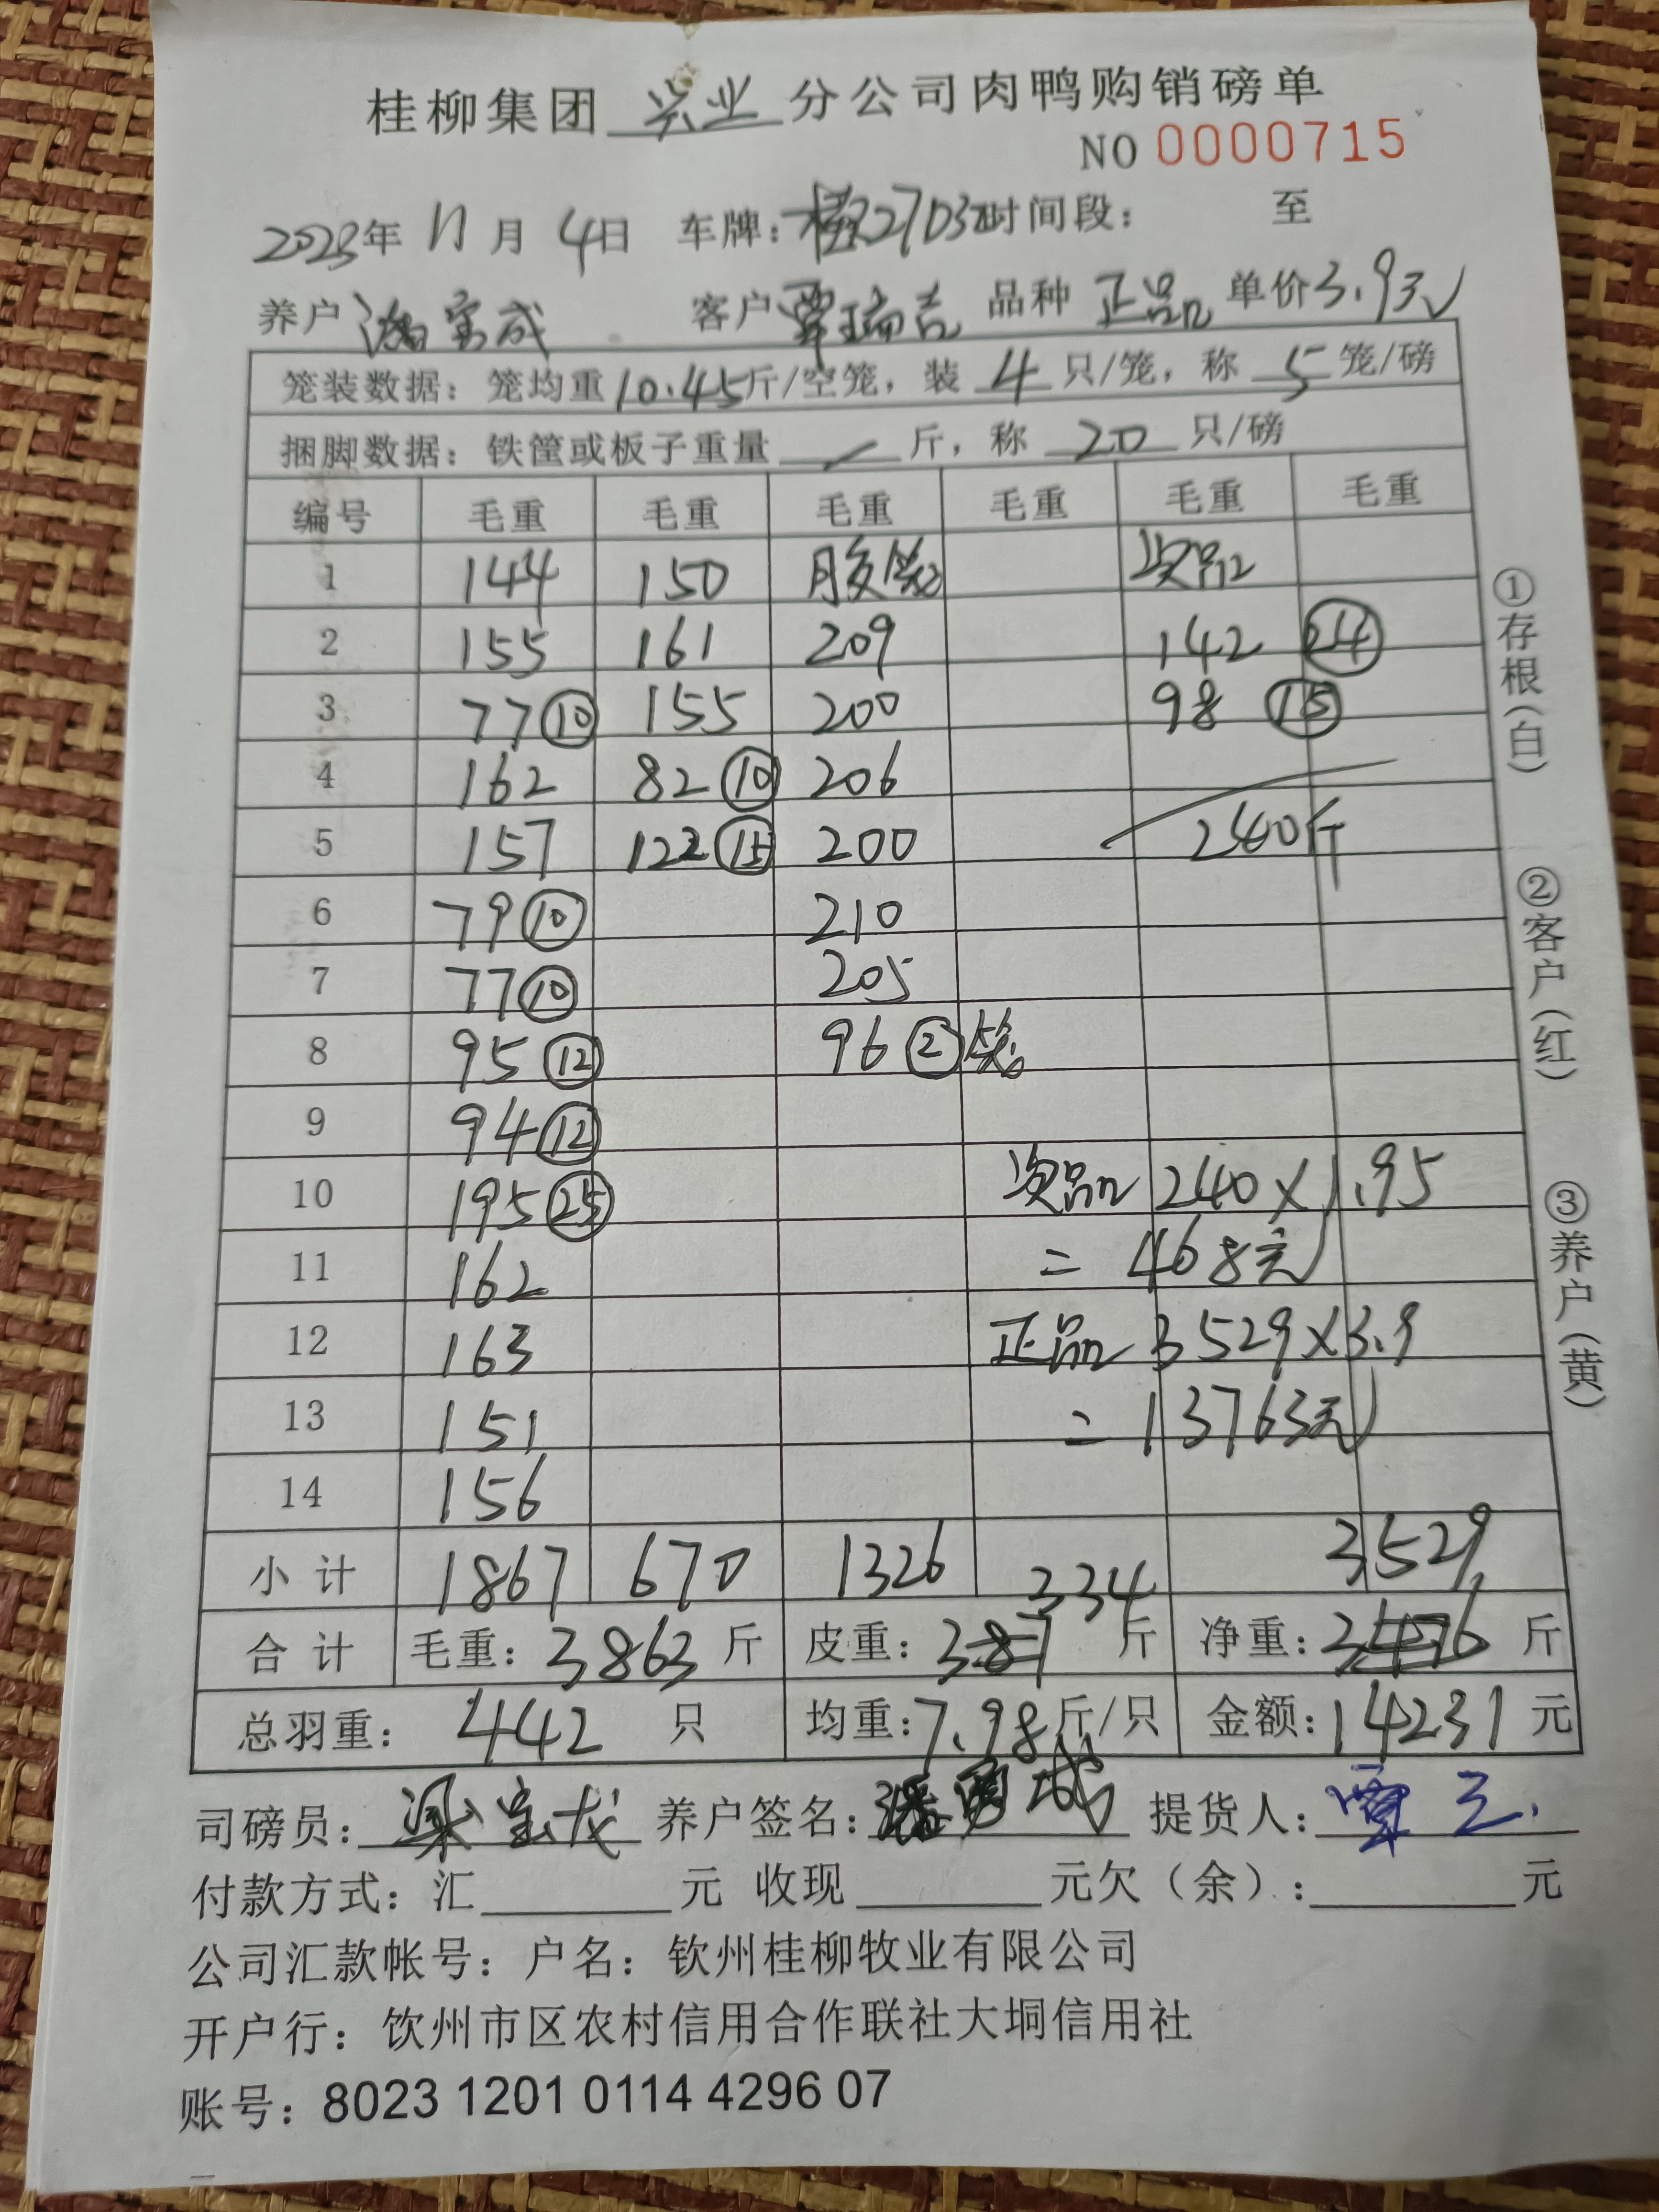 桂柳集团 兴业 分公司肉鸭购销磅单
NO 0000715
2023年 11月 4日 车牌: 时间段: 至
养户 潘宝成 客户 覃瑞吉 品种 正品 单价 3.9元
笼装数据: 笼均重 10.45 斤/空笼, 装 4 只/笼, 称 5 笼/磅
捆脚数据: 铁筐或板子重量 / 斤, 称 20 只/磅
编号 毛重 毛重 毛重 毛重 毛重 毛重
1 144 150 胶笼 次品
2 155 161 209 142 24
3 77 10 155 200 98 15
4 162 82 10 206
5 157 122 15 200 240斤
6 79 10 210
7 77 10 205
8 95 12 96 2笼
9 94 12
10 195 25 次品 240×1.95
11 162 =468元
12 163 正品 3529×3.9
13 151 =13763元
14 156
小计 1867 670 1326 334 3529
合计 毛重: 3863 斤 皮重: 387 斤 净重: 3476 斤
总羽重: 442 只 均重: 7.98 斤/只 金额: 14231 元
司磅员: 梁宝龙 养户签名: 提货人: 覃三
付款方式: 汇 元 收现 元欠(余): 元
公司汇款帐号: 户名: 钦州桂柳牧业有限公司
开户行: 钦州市区农村信用合作联社大垌信用社
账号: 8023 1201 0114 4296 07
①存根(白)
②客户(红)
③养户(黄)